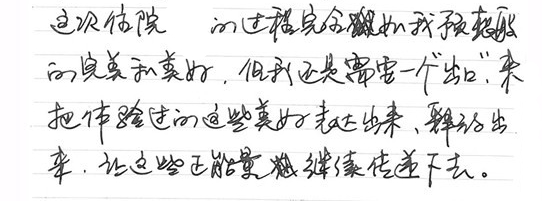 这次住院 的过程完全如我预想般
的完美和美好，但我还是需要一个"出口"，来
把体验过的这些美好表达出来、释放出
来，让这些正能量继续传递下去。